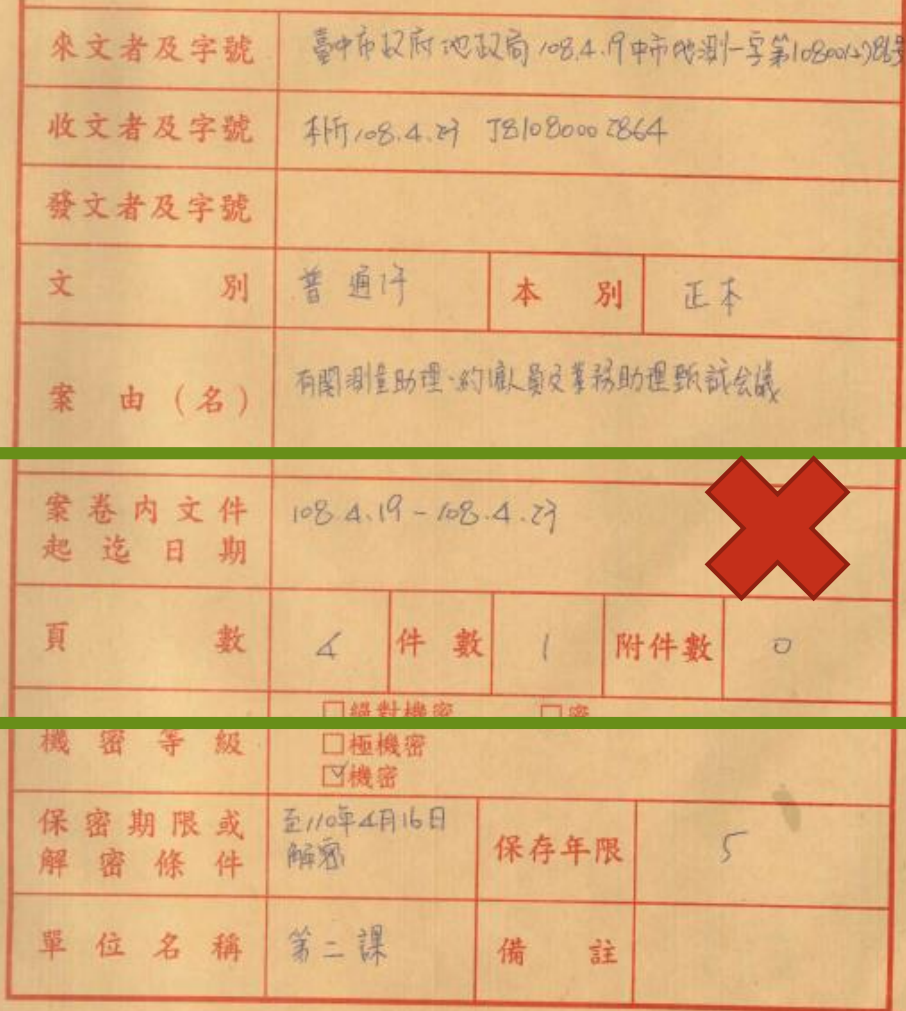 來文者及字號 臺中市政府地政局108.4.19中市地測一字第1080012786號
收文者及字號 本所108.4.23 J81080002864
發文者及字號
文別 普通件 本別 正本
案由(名) 有關測量助理、約僱人員及業務助理甄試会議
案卷內文件
起迄日期 108.4.19-108.4.23
頁數 4 件數 1 附件數 0
□絕對機密 □密
機密等級 □極機密
☑機密
保密期限或
解密條件 至110年4月16日
解密 保存年限 5
單位名稱 第二課 備註